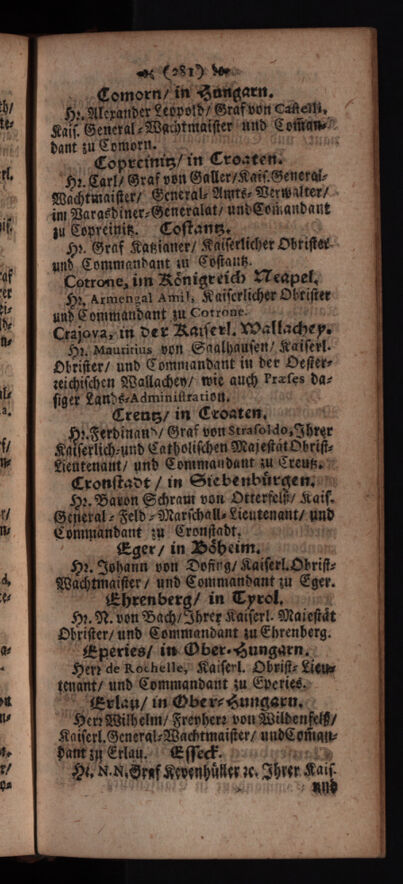 (281)
Comorn/ in Hungarn.
Hr. Alexander Leopold/ Graf von Castelli,
Kais. General-Wachtmaister und Com̃an-
dant zu Comorn.
Copreinitz/ in Croaten.
Hr. Carl/ Graf von Galler/ Kais. General-
Wachtmaister/ General-Amts-Verwalter/
im Varasdiner-Generalat/ und Com̃andant
zu Copreinitz. Costantz.
Hr. Graf Katzianer/ Kaiserlicher Obrister
und Commandant zu Costantz.
Cotrone, im Königreich Neapel.
Hr. Armengal Amil, Kaiserlicher Obrister
und Commandant zu Cotrone.
Crajova, in der Kaiserl. Wallachey.
Hr. Mauritius von Saalhausen/ Kaiserl.
Obrister/ und Commandant in der Oester-
reichischen Wallachey/ wie auch Præses da-
siger Lands-Administration.
Creutz/ in Croaten.
Hr. Ferdinand/ Graf von Strasoldo, Ihrer
Kaiserlich-und Catholischen Majestät Obrist-
Lieutenant/ und Commandant zu Creutz.
Cronstadt/ in Siebenbürgen.
Hr. Baron Schram von Otterfelß/ Kais.
General-Feld-Marschall-Lieutenant/ und
Commandant zu Cronstadt.
Eger/ in Böheim.
Hr. Johann von Dofing/ Kaiserl. Obrist-
Wachtmaister/ und Commandant zu Eger.
Ehrenberg/ in Tyrol.
Hr. N. von Bach/ Ihrer Kaiserl. Majestät
Obrister/ und Commandant zu Ehrenberg.
Eperies/ in Ober-Hungarn.
Herr de Rochelle, Kaiserl. Obrist-Lieu-
tenant/ und Commandant zu Eperies.
Erlau/ in Ober-Hungarn.
Herr Wilhelm/ Freyherr von Wildenfelß/
Kaiserl. General-Wachtmaister/ und Com̃an-
dant zu Erlau. Esseck.
Hr. N.N. Graf Kevenhüller ꝛc. Ihrer Kais.
und